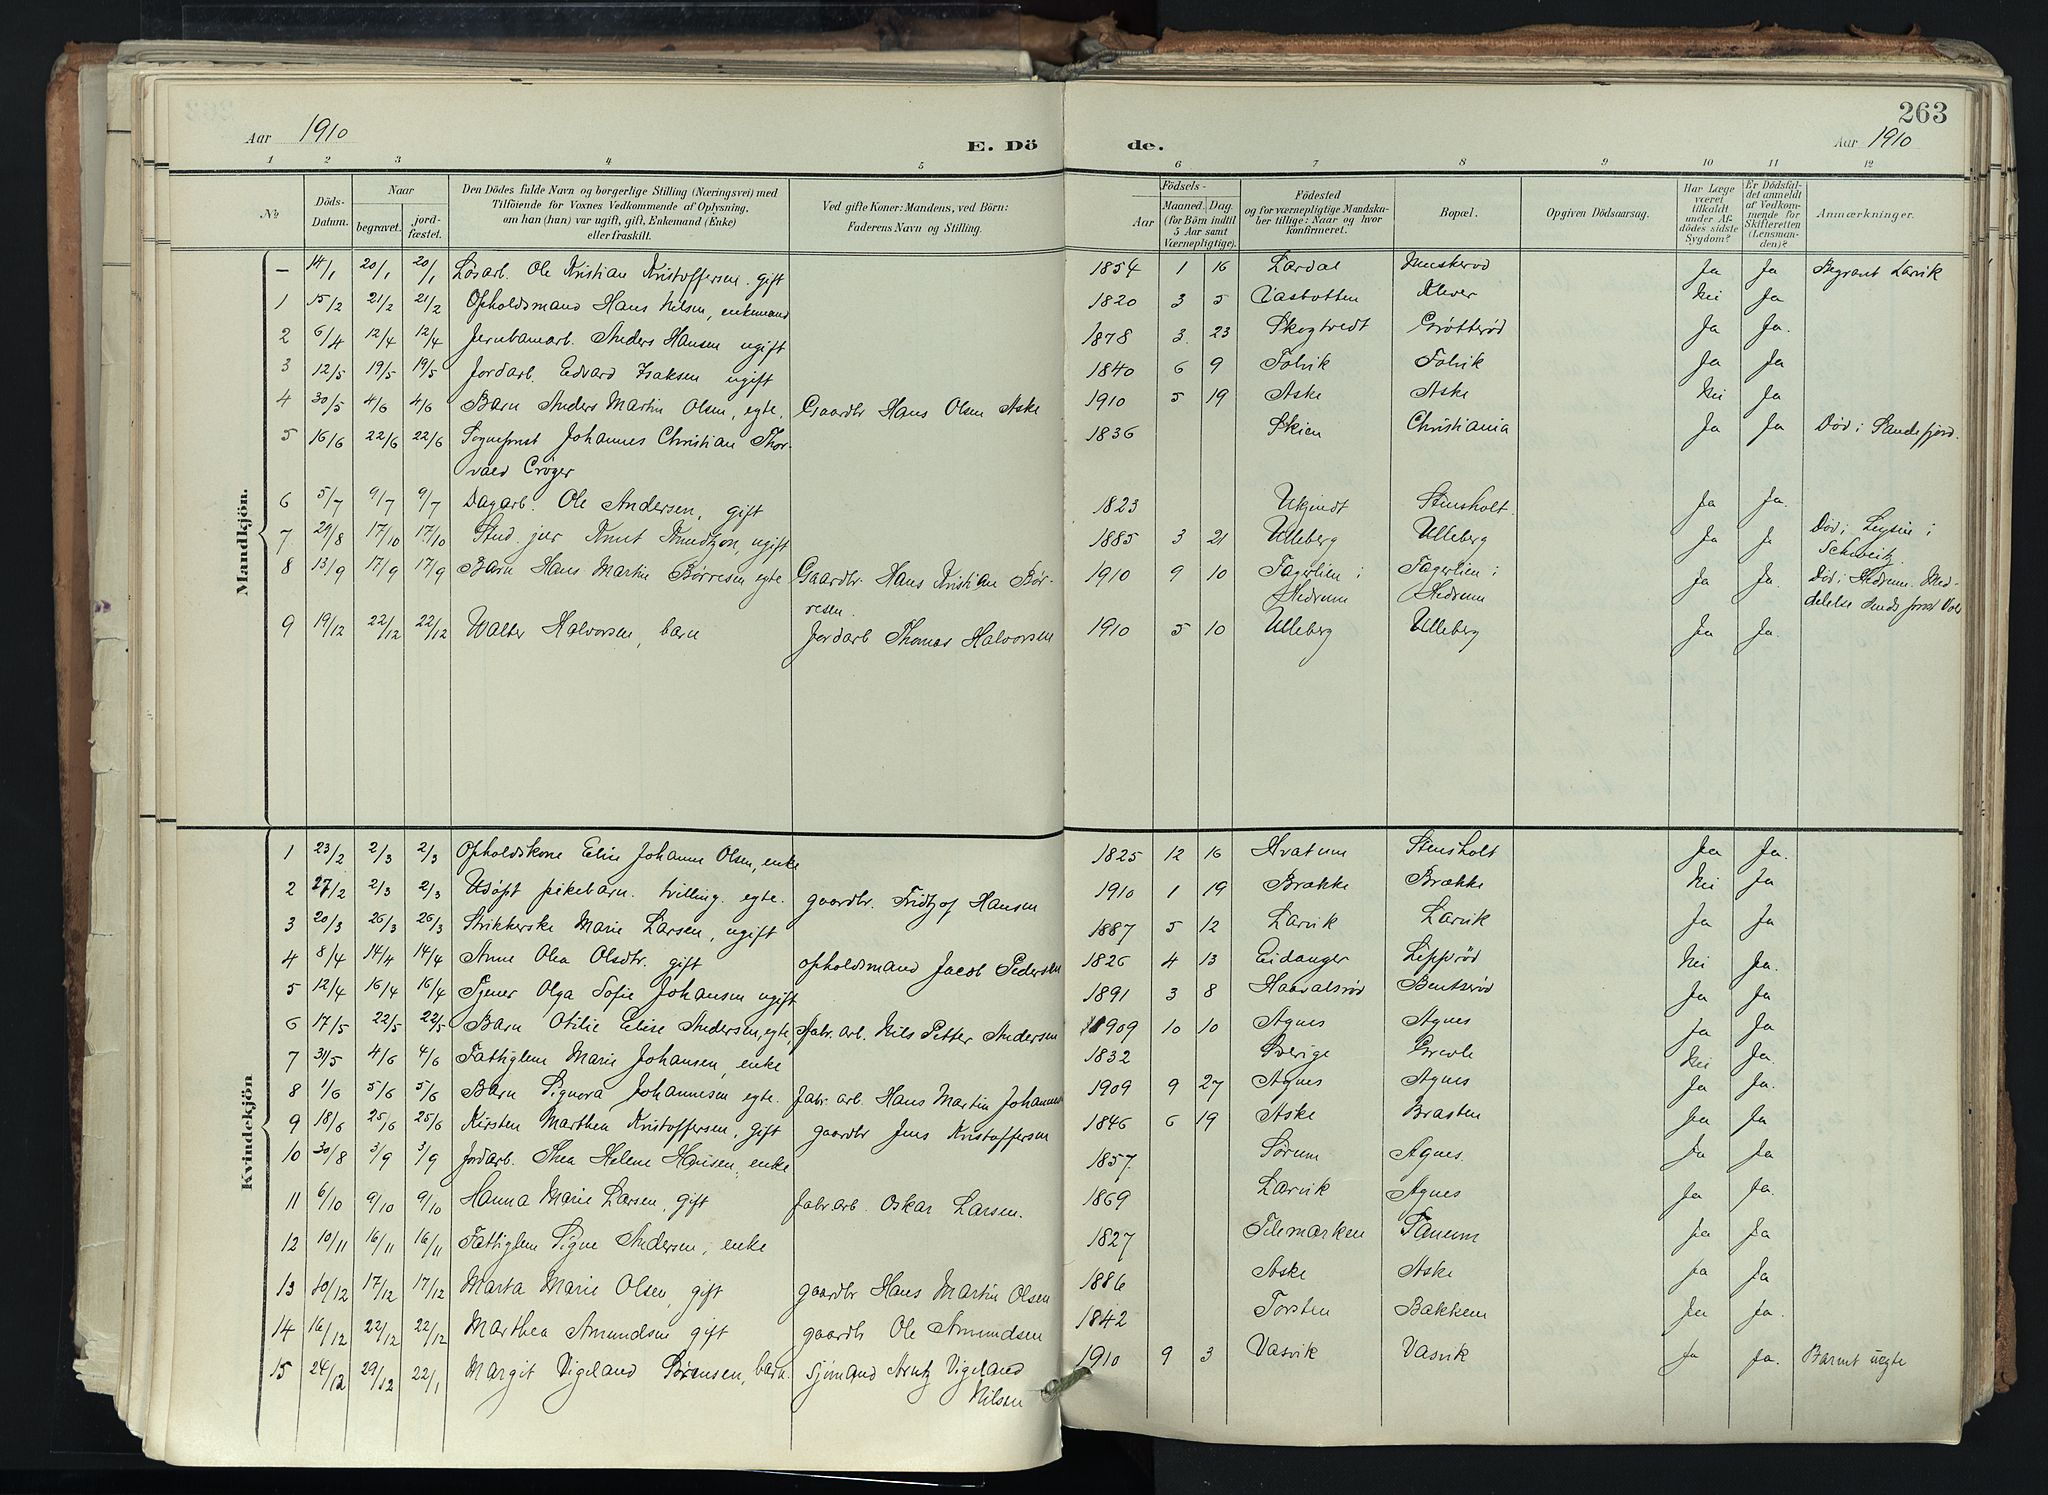 263
Aar 1910 E. Dö de. Aar 1910
1 2 3 4 5 6 7 8 9 10 11 12
№ Döds-Datum. Naar begravet. jord-fæstet. Den Dödes fulde Navn og borgerlige Stilling (Næringsvei) med Tilföiende for Voxnes Vedkommende af Oplysning, om han (hun) var ugift, gift, Enkemand (Enke) eller fraskilt. Ved gifte Koner: Mandens, ved Börn: Faderens Navn og Stilling. Födsels- Aar Maaned. Dag (for Börn indtil 5 Aar samt Værnepligtige). Födested og for værnepligtige Mandska-ber tillige: Naar og hvor konfirmeret. Bopæl. Opgiven Dödsaarsag. Har Læge været tilkaldt under Af-dödes sidste Sygdom? Er Dödsfal-det anmeldt af Vedkom-mende for Skifteretten (Lensman-den)? Anmærkninger.
Mandkjön.
— 14/1 20/1 20/1 Løsarb. Ole Kristian Kristoffersen. gift 1854 1 16 Lardal Muskerød Ja Ja Begravet Larvik
1 15/2 21/2 21/2 Opholdsmand Hans Nilsen, enkemand 1820 3 5 Vasbotten Klever Nei Ja
2 6/4 12/4 12/4 Jernbanearb. Anders Hansen ugift 1878 3. 23 Skogtvedt Grøtterød Ja Ja.
3 12/5 19/5 19/5 Jordarb. Edvard Isaksen ugift 1840 6 9 Tolvik Tolvik Ja Ja
4 30/5 4/6 4/6 Barn Anders Martin Olsen, egte, Gaardbr Hans Olsen Aske 1910 5 19 Aske Aske Nei Ja
5 16/6 22/6 22/6 Sogneprest Johannes Christian Thor- 1836 Skien Christiania Ja Ja Død i Sandefjord.
vald Crøger
6 5/7 9/7 9/7 Dagarb. Ole Andersen, gift 1823 Ukjendt Stensholt. Ja Ja.
7 29/8 17/10 17/10 Stud. jur Knut Knudtzon, ugift 1885 3 21 Ulleberg Ulleberg Ja Ja Død i Leysin i
Schweitz
8 13/9 17/9 17/9 Barn Hans Martin Børresen egte Gaardbr. Hans Kristian Bør- 1910 9 10 Fagerlien i Fagerlien i Ja Ja. Død i Hedrum. Med-
resen. Hedrum Hedrum delelse sendt
9 19/12 22/12 22/12 Walter Halvorsen, barn Jordarb Thomas Halvorsen 1910 5 10 Ulleberg Ulleberg Ja Ja.
Kvindekjön
1 23/2 2/3 2/3 Opholdskone Elise Johanne Olsen, enke 1825 12 16 Hvatum Stensholt Ja Ja.
2 27/2 2/3 2/3 Udøpt pikebarn. tvilling. egte. gaardbr. Fridtjof Hansen 1910 1 19 Brække Brække Nei Ja
3 20/3 26/3 26/3 Strikkerske Marie Larsen, ugift 1887 5 12 Larvik Larvik Ja Ja
4 8/4 14/4 14/4 Anne Olea Olsdtr. gift opholdsmand Jacob Pedersen 1826 4 13 Eidanger Lepprød Nei Ja.
5 12/4 16/4 16/4 Tjener Olga Sofie Johansen ugift 1891 3 8 Haavalsrød Bentserød Ja Ja
6 17/5 22/5 22/5 Barn Otilie Elise Andersen, egte, Fabr. arb. Nils Petter Andersen 1909 10 10 Agnes Agnes Ja Ja
7 31/5 4/6 4/6 Fattiglem Marie Johansen, enke 1832 Sverige Grevle Nei Ja.
8 1/6 5/6 5/6 Barn Signora Johannesen egte. Fabr. arb. Hans Martin Johannes 1909 9 27 Agnes Agnes Ja Ja.
9 18/6 25/6 25/6 Kirsten Marthea Kristoffersen, gift gaardbr Jens Kristoffersen 1846 6 19 Aske Brasten Ja Ja
10 30/8 3/9 3/9 Jordarb. Thea Helene Hansen, enke 1857. Sørum Agnes. Ja Ja
11 6/10 9/10 9/10 Hanna Marie Larsen, gift Fabr.arb. Oskar Larsen. 1869 Larvik Agnes Ja Ja.
12 10/11 16/11 16/11 Fattiglem Signe Andersen, enke 1827 Telemarken Tanum Ja Ja
13 10/12 17/12 17/12 Marta Marie Olsen, gift gaardbr Hans Martin Olsen 1886 Aske Aske Ja Ja
14 16/12 22/12 22/12 Marthea Amundsen gift gaardb Ole Amundsen 1842 Torsten Bakken Ja Ja.
15 24/12 29/12 22/1 Margit Vigeland Sørensen, barn. Sjømand Arntz Vigeland 1910 9 3 Vasvik Vasvik Ja Ja. Barnet uegte
Nilsen